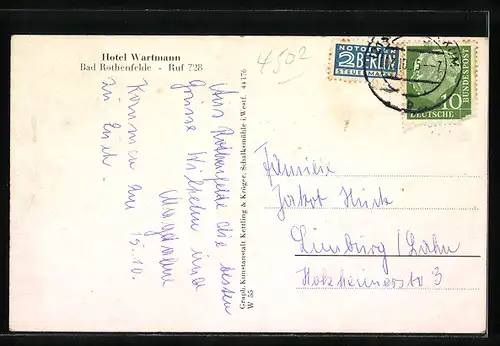 Hotel Wartmann
Bad Rothenfelde - Ruf 728
4502
NOTOPFER
2 BERLIN
STEUERMARKE
10
DEUTSCHE
BUNDESPOST
Aus Rothenfelde die besten
Grüsse Wilhelm und
Magdalene
Kommen am 15.10.
zu Euch.
Graph. Kunstanstalt Kettling & Krüger, Schalksmühle i. Westf. 44176
W 55
Familie
Jakob
Limburg/Lahn
Holzheimerstr. 3